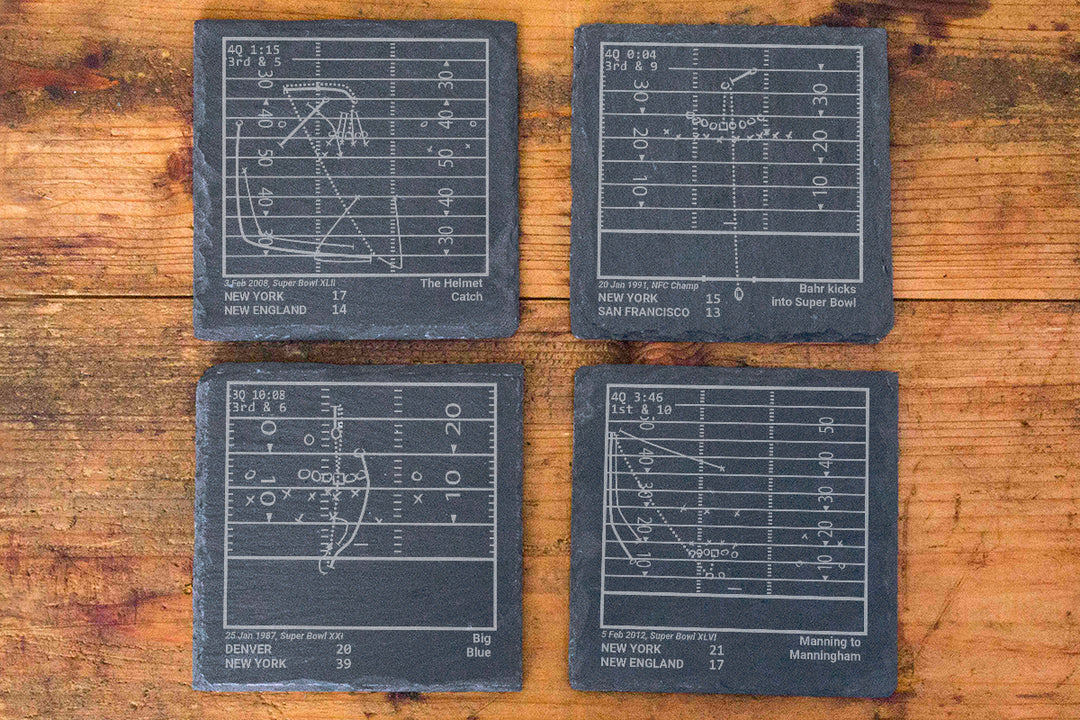 4Q 1:15
3rd & 5
30 30
40 40
50 50
40 40
30 30
3 Feb 2008, Super Bowl XLII
The Helmet
Catch
NEW YORK 17
NEW ENGLAND 14
4Q 0:04
3rd & 9
30 30
20 20
10 10
20 Jan 1991, NFC Champ
Bahr kicks
into Super Bowl
NEW YORK 15
SAN FRANCISCO 13
3Q 10:08
3rd & 6
20
10 10
25 Jan 1987, Super Bowl XXI
Big
Blue
DENVER 20
NEW YORK 39
4Q 3:46
1st & 10
50
40 40
30 30
20 20
10 10
5 Feb 2012, Super Bowl XLVI
Manning to
Manningham
NEW YORK 21
NEW ENGLAND 17